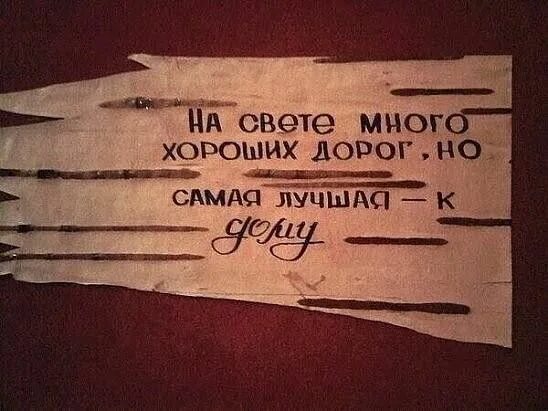 На свете много
хороших дорог, но
самая лучшая — к
дому